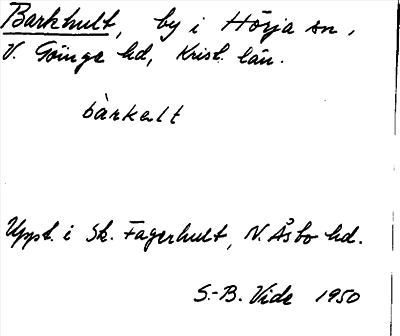 Barkhult, by i Hörja sn,
V. Göinge hd, Krist. län.
bàrkalt
Uppt. i Sk. Fagerhult, N. Åsbo hd.
S.-B. Vide 1950